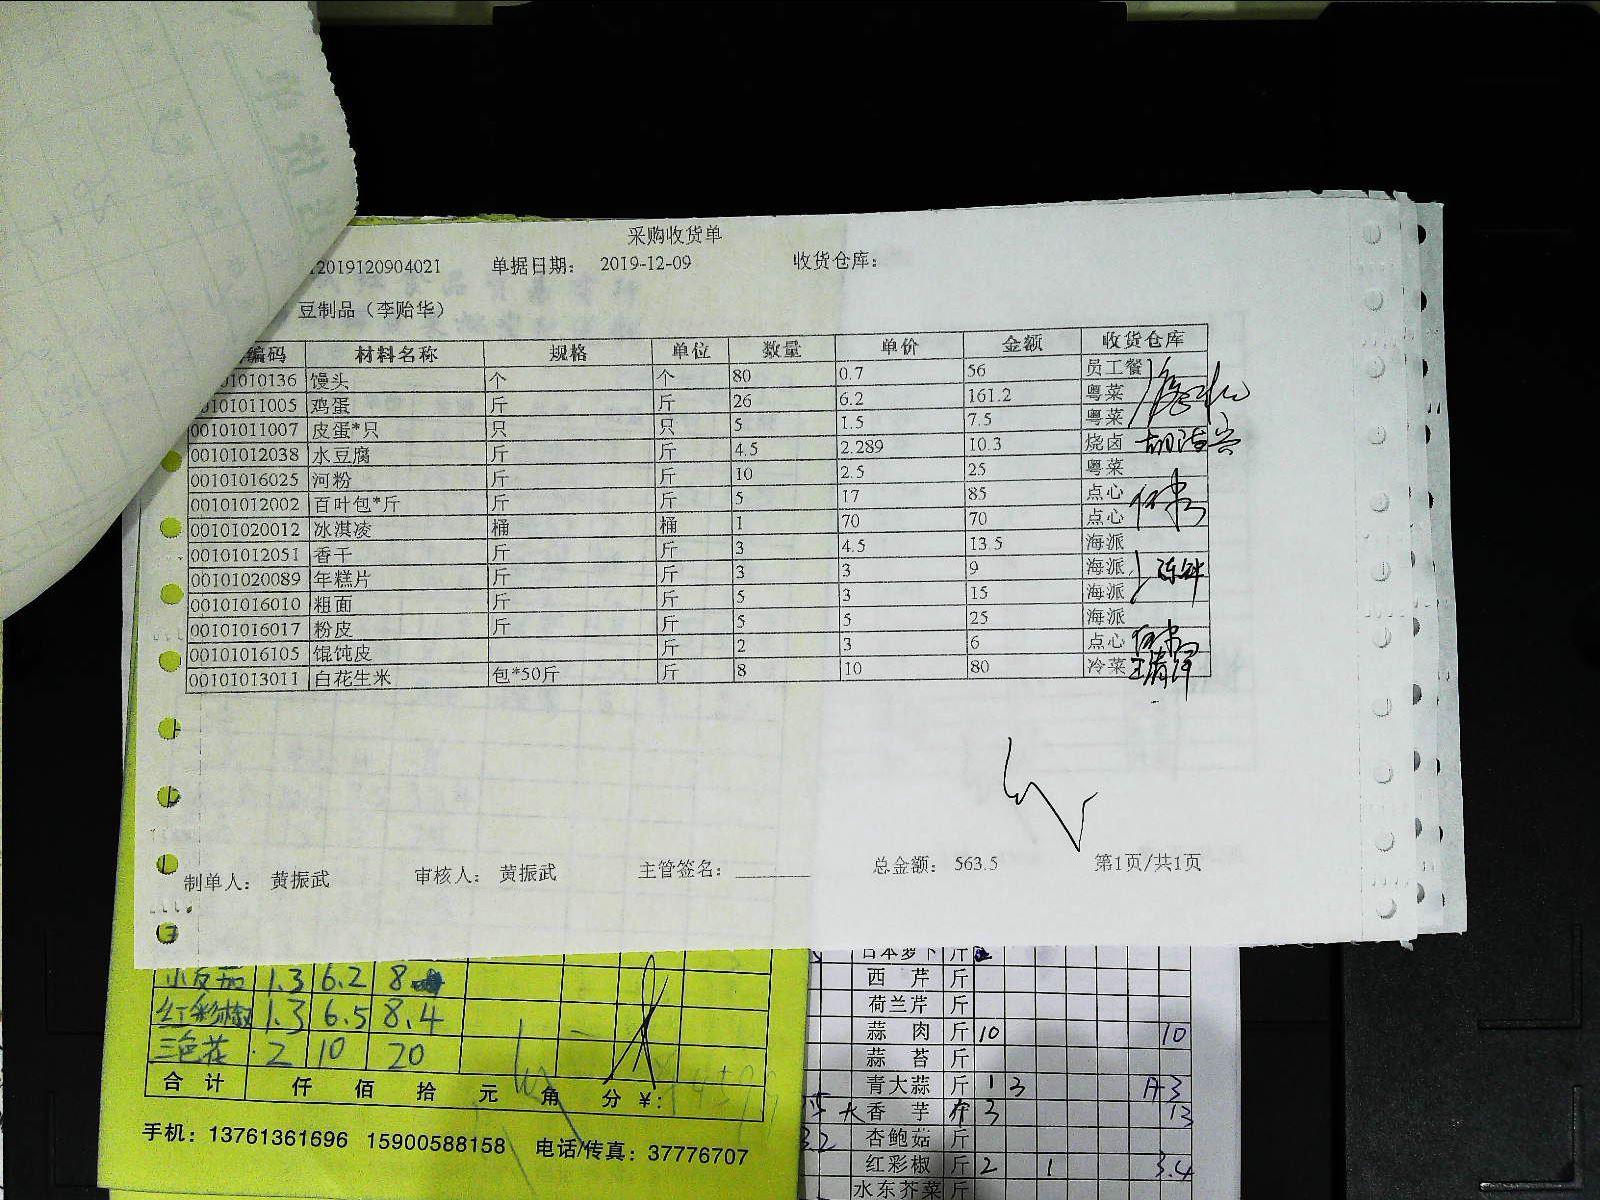 采购收货单
2019120904021 单据日期： 2019-12-09 收货仓库：
豆制品（李贻华）
编码 材料名称 规格 单位 数量 单价 金额 收货仓库
01010136 馒头 个 个 80 0.7 56 员工餐
00101011005 鸡蛋 斤 斤 26 6.2 161.2 粤菜
00101011007 皮蛋*只 只 只 5 1.5 7.5 粤菜
00101012038 水豆腐 斤 斤 4.5 2.289 10.3 烧卤
00101016025 河粉 斤 斤 10 2.5 25 粤菜
00101012002 百叶包*斤 斤 斤 5 17 85 点心
00101020012 冰淇凌 桶 桶 1 70 70 点心
00101012051 香干 斤 斤 3 4.5 13.5 海派
00101020089 年糕片 斤 斤 3 3 9 海派
00101016010 粗面 斤 斤 5 3 15 海派
00101016017 粉皮 斤 斤 5 5 25 海派
00101016105 馄饨皮 斤 2 3 6 点心
00101013011 白花生米 包*50斤 斤 8 10 80 冷菜
制单人： 黄振武 审核人： 黄振武 主管签名： 总金额： 563.5 第1页/共1页
1.3 6.2 8
红彩椒 1.3 6.5 8.4
三色花 2 10 20
合计 仟 佰 拾 元 角 分 ¥:
手机：13761361696 15900588158 电话/传真：37776707
日本萝卜 斤
西芹 斤
荷兰芹 斤
蒜肉 斤 10 10
蒜苔 斤
青大蒜 斤 1 3
香芋 3 13
杏鲍菇 斤
红彩椒 斤 2 1 3.4
水东芥菜 斤